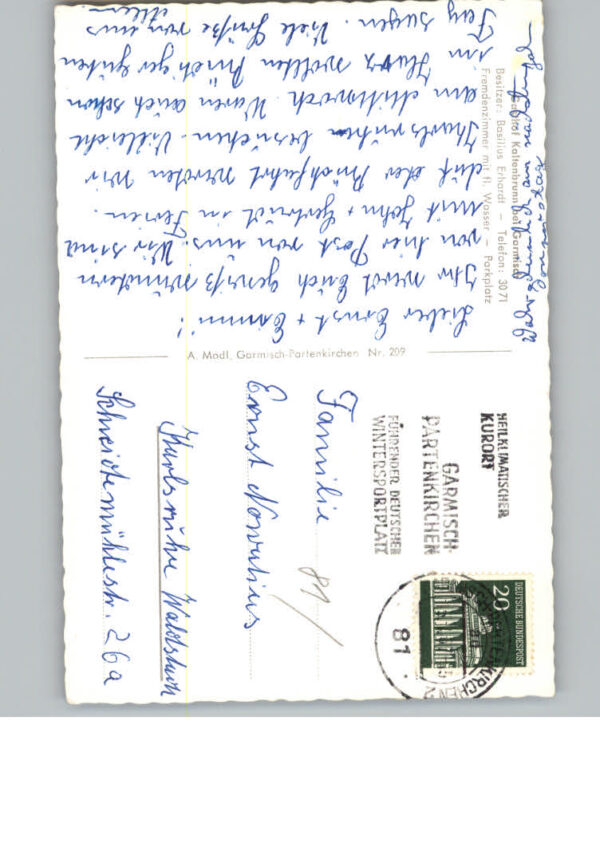 Gasthof Kaltenbrunn bei Garmisch
Besitzer: Basilius Erhardt – Telefon: 3071
Fremdenzimmer mit fl. Wasser – Parkplatz
Lieber Ernst + Emmi!
Ihr werdet Euch gewiß wundern
von hier Post von uns. Wir sind
mit John + Gertrud in Ferien.
Auf der Rückfahrt werden wir
Karlsruhe besuchen. Villeicht
am Mittwoch. Waren auch schon
im Harz wollten Rüdiger Grüßen
Tag sagen. Viele Grüße von uns
allen
A. Mödl, Garmisch-Partenkirchen Nr. 209
HEILKLIMATISCHER
KURORT
GARMISCH-
PARTENKIRCHEN
FÜHRENDER DEUTSCHER
WINTERSPORTPLATZ
DEUTSCHE BUNDESPOST
20
81
Familie
81/
Ernst
Karlsruhe Waldstadt
Schneidemühlestr. 26a